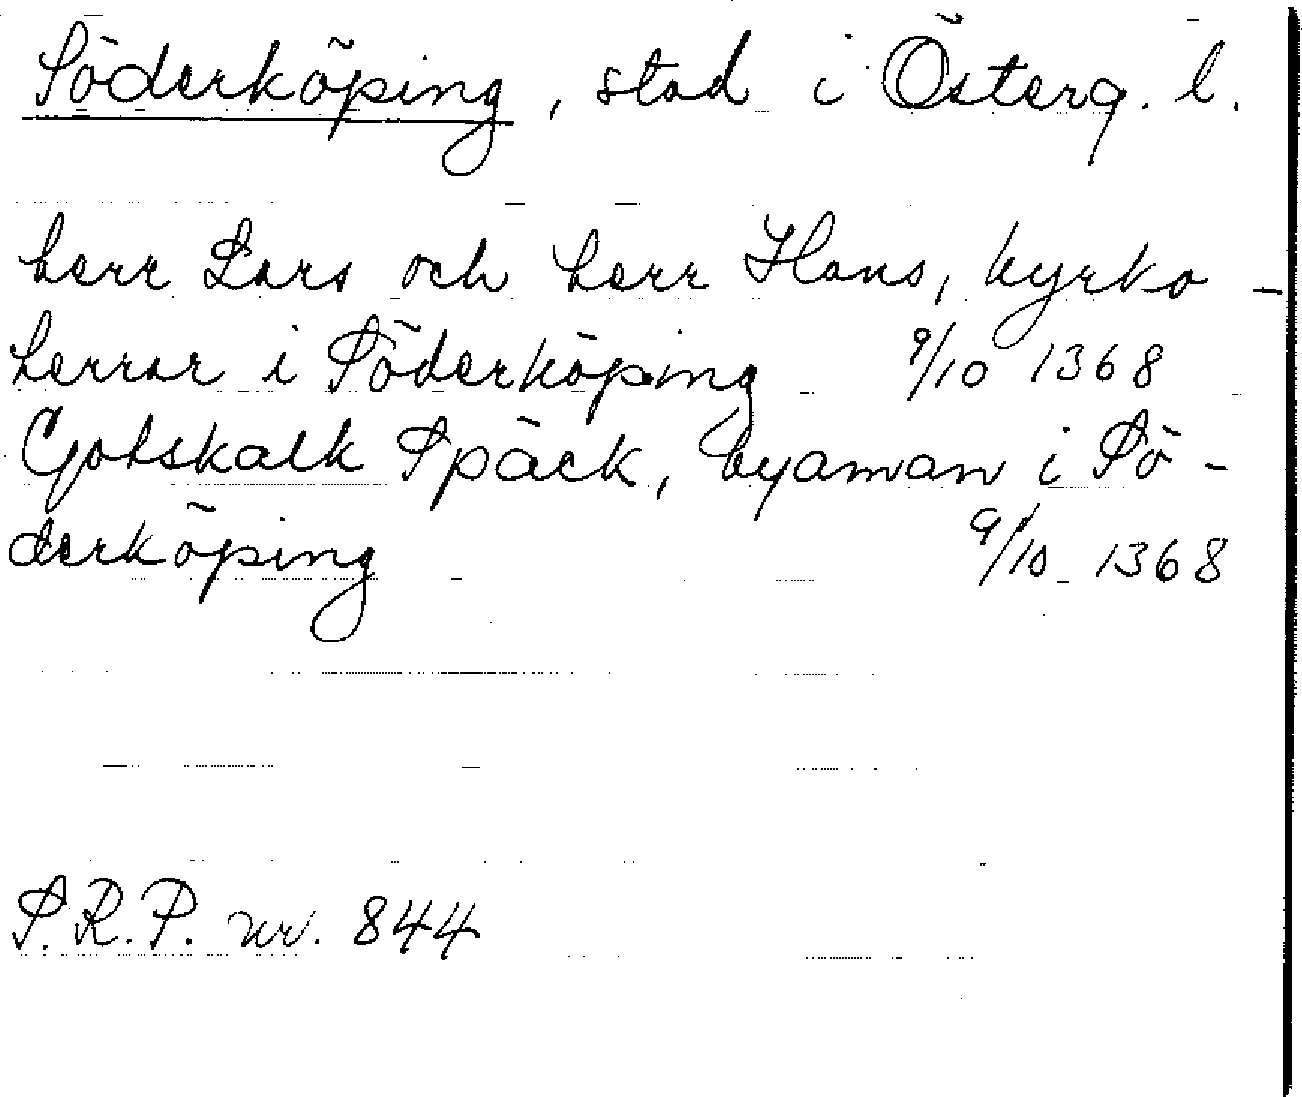 Söderköping, stad i Österg. l.
herr Lars och herr Hans, kyrko-
herrar i Söderköping 9/10 1368
Gotskalk Späck, byaman i Sö-
derköping 9/10 1368
S.R.P. nr. 844